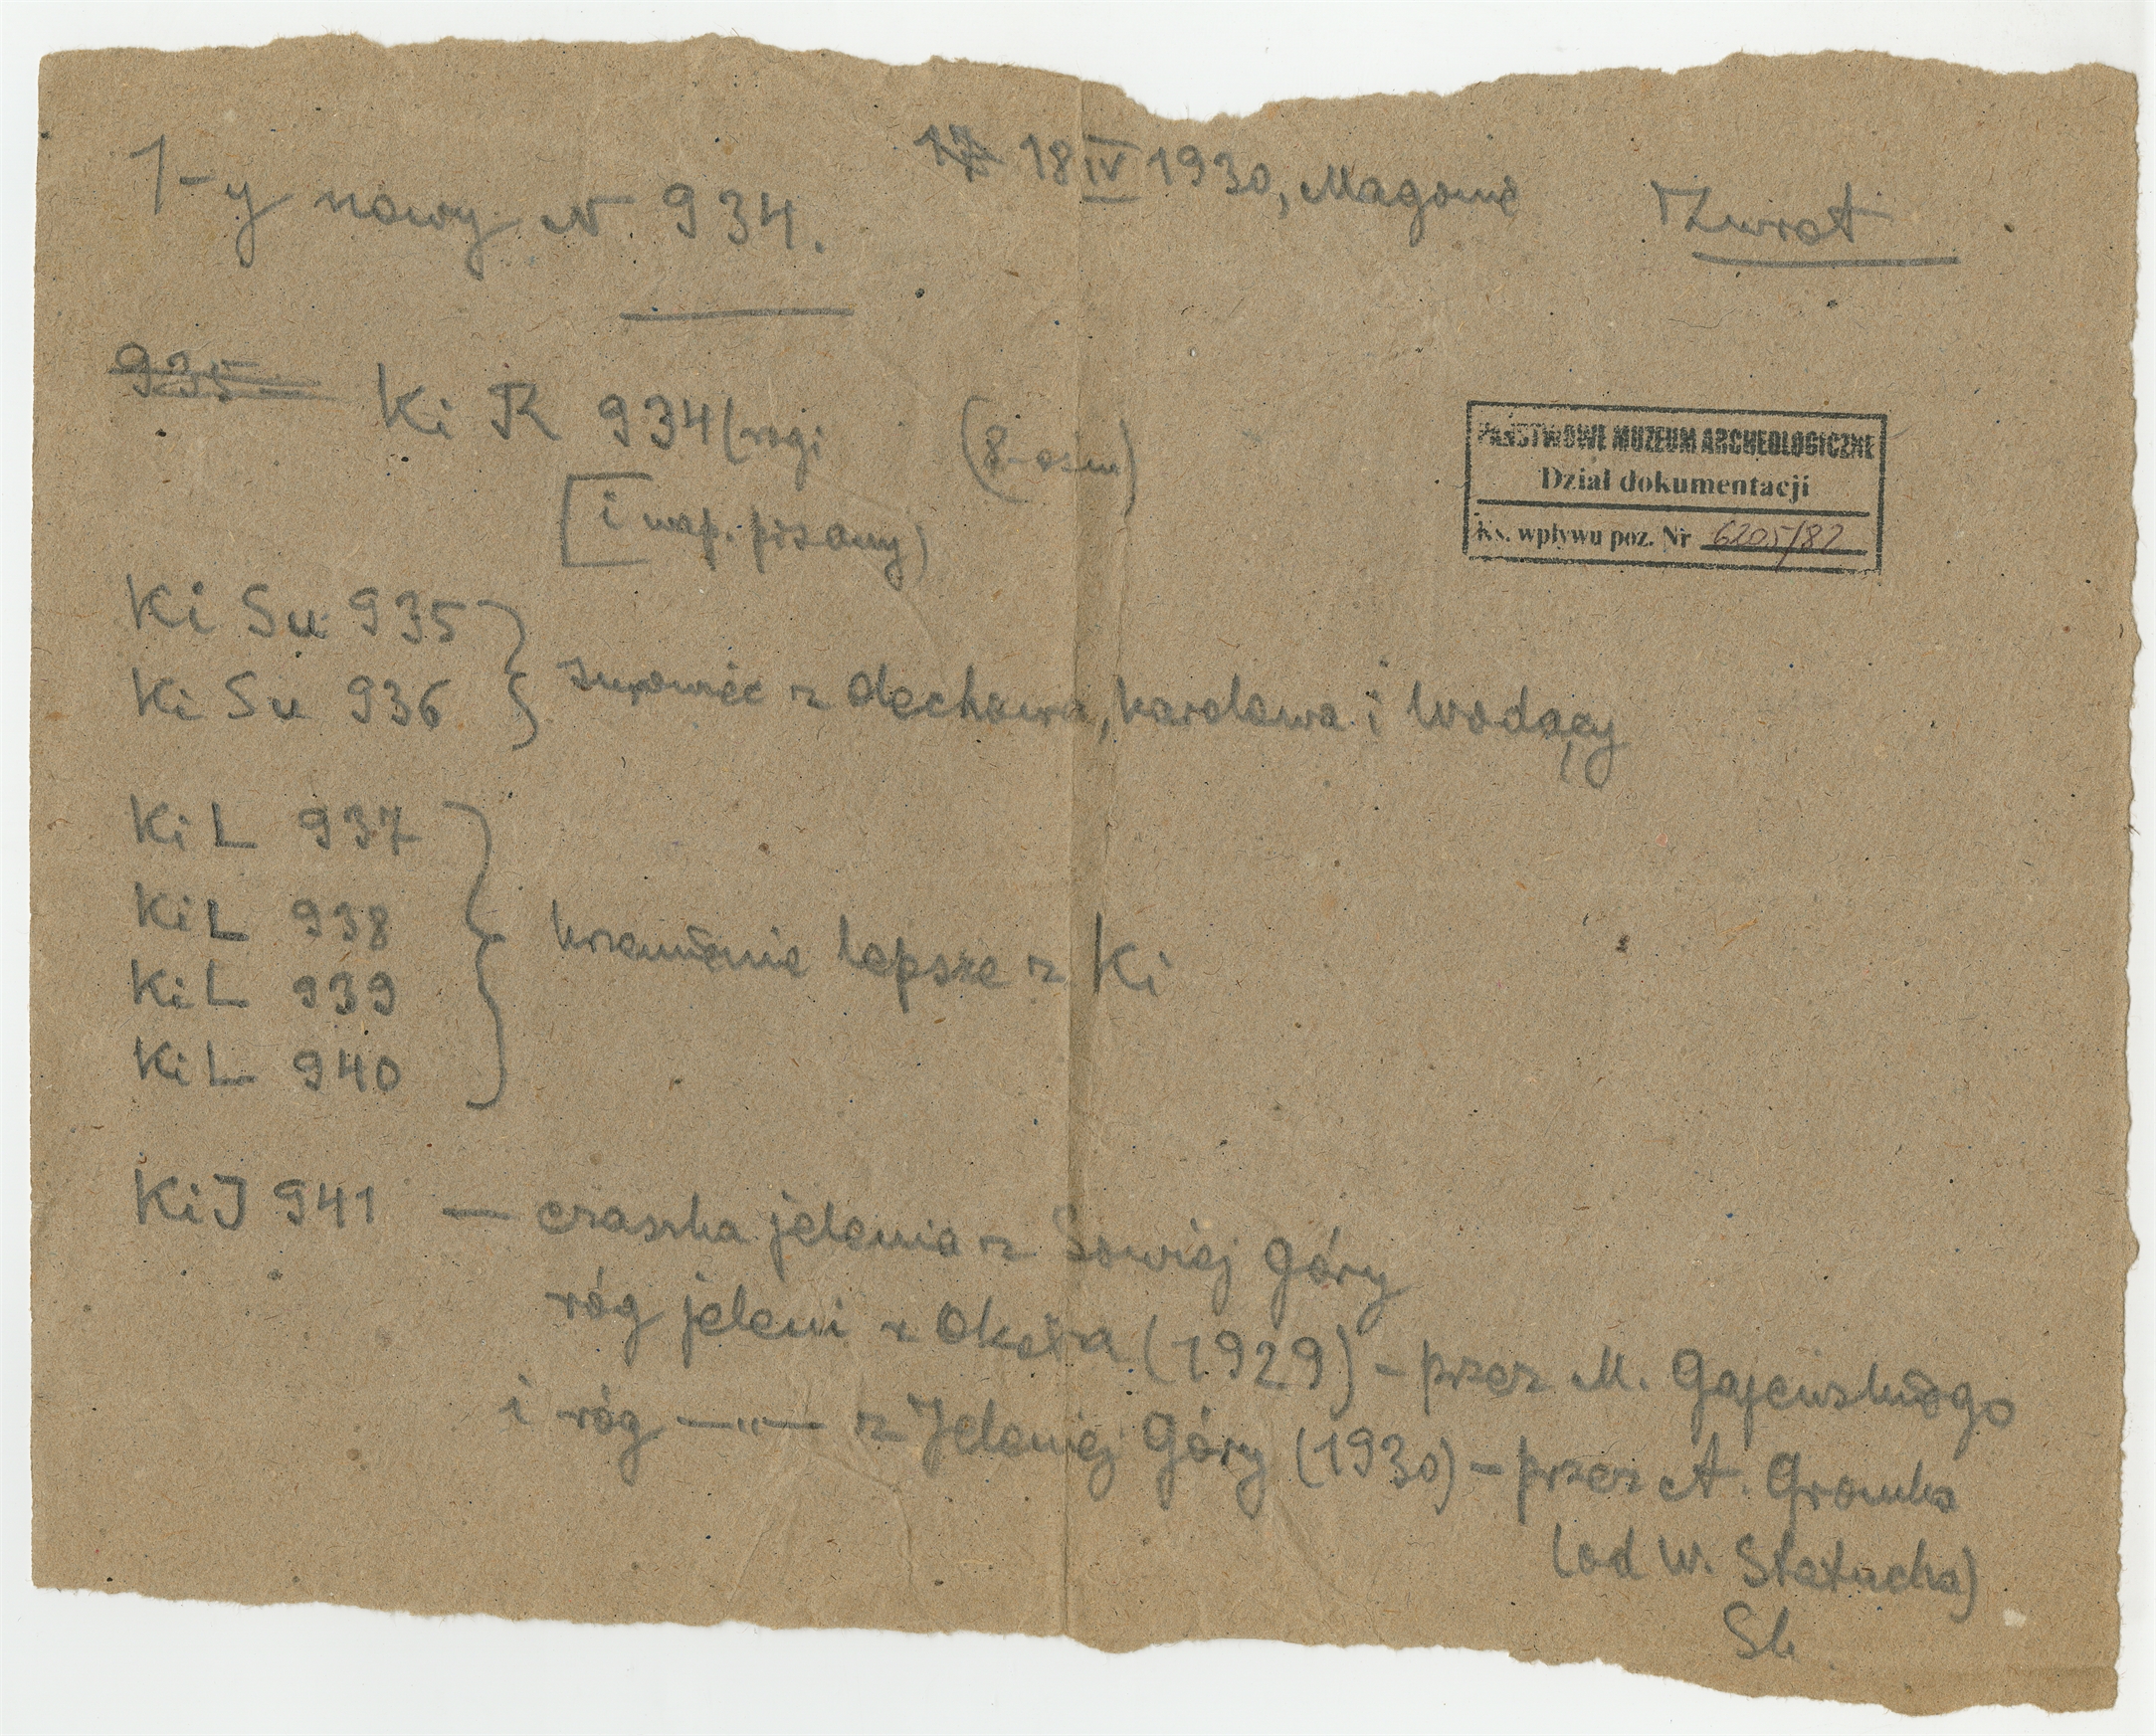 1-y nowy N 934.
18 IV 1930, Magonie
Zwrot
935
Ki R 934 (rogi (8-osm)
[i wap. pisany)
PAŃSTWOWE MUZEUM ARCHEOLOGICZNE
Dział dokumentacji
Ks. wpływu poz. Nr 6205/82
Ki Su 935
Ki Su 936
surowiec z Olechowa, Karolowa i Wodący
Ki L 937
Ki L 938
Ki L 939
Ki L 940
krzemienie lepsze z Ki
Ki J 941 — czaszka jelenia z Sowiej Góry
róg jeleni z Okoła (1929) - przez M. Gajewskiego
i róg —"— z Jeleniej Góry (1930) - przez A. Gromka
(od W. Statucha)
Sk.